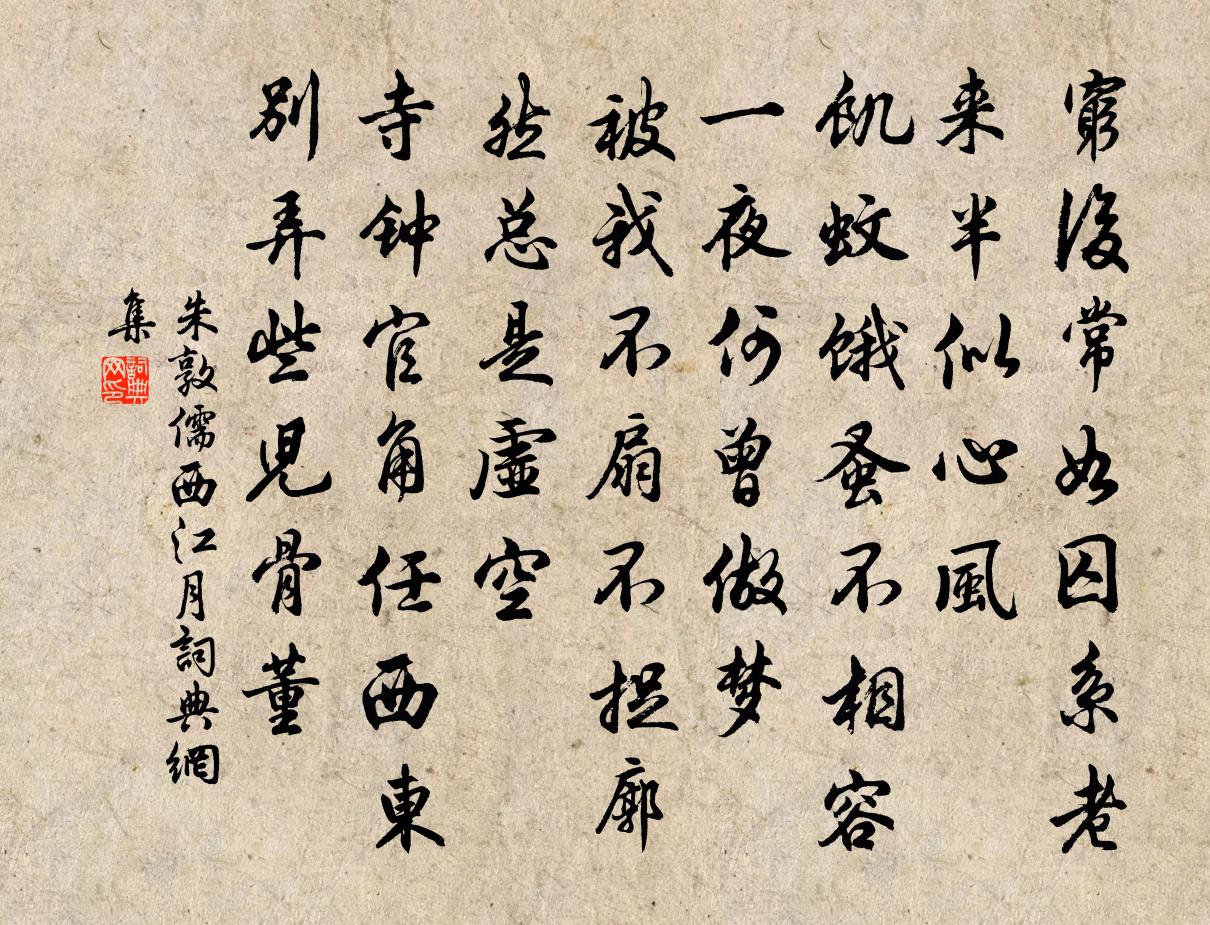 窮後常如囚系老
来半似心風
飢蚊餓蚤不相容
一夜何曾做梦
被我不扇不捉廓
然总是虛空
寺钟官角任西東
別弄些兒骨董
朱敦儒西江月詞典網
集
詞典網印